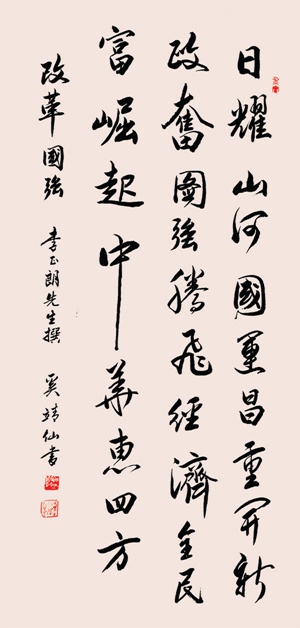 日耀山河國運昌重開新
政奮圖強騰飛經濟全民
富崛起中華惠四方
改革國強 李正朗先生撰 奚靖仙書